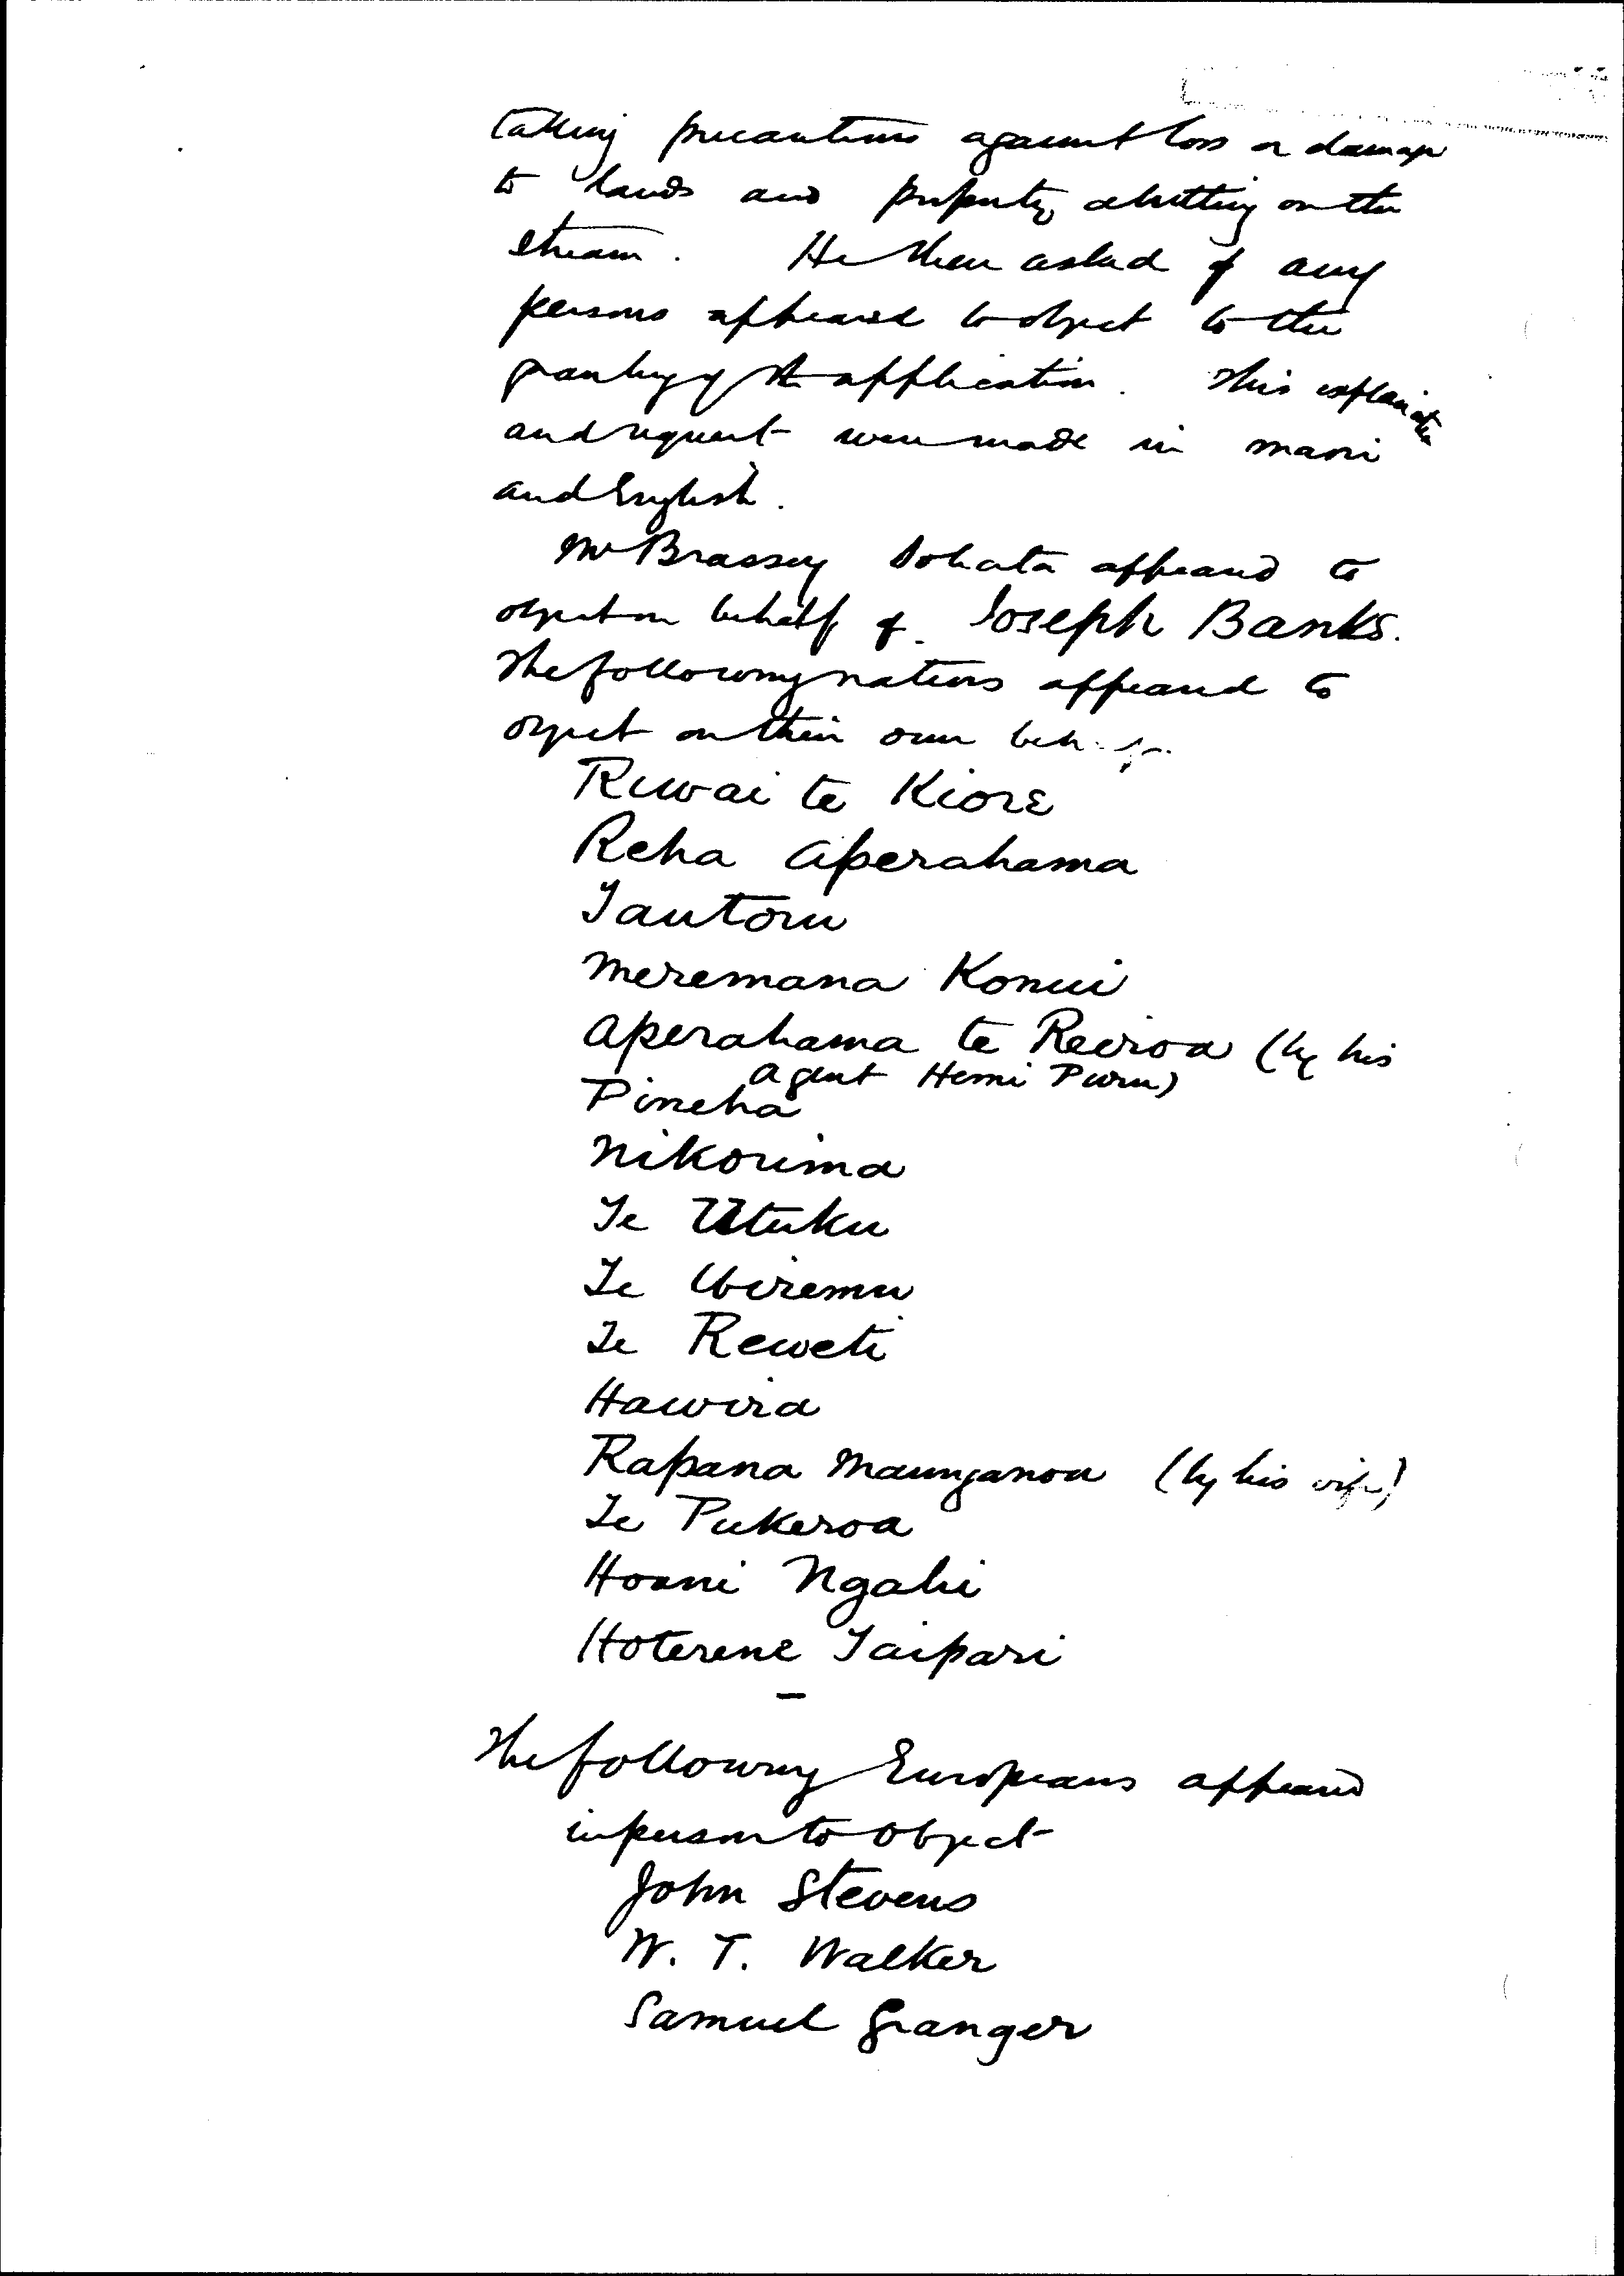 taking precautions against loss or damage
to lands and property abutting on the
stream. He then asked if any
persons appeared to object to the
granting of the application. This explanation
and request were made in maori
and English.
Mr Brassey appeared to
object on behalf of Joseph Banks.
The following natives appeared to
object on their own behalf
Riwai te Kiore
Reha Aperahama
Tautoru
Meremana Konui
Aperahama te Reiroa (by his
agent Hemi Puru)
Pineha
Nikorima
Te Utuku
Te Wiremu
Te Reweti
Hawira
Rapana Maunganoa (by his wife)
Te Pukeroa
Hoani Ngahi
Hoterene Taipari
—
The following Europeans appeared
in person to object
John Stevens
W. T. Walker
Samuel Granger